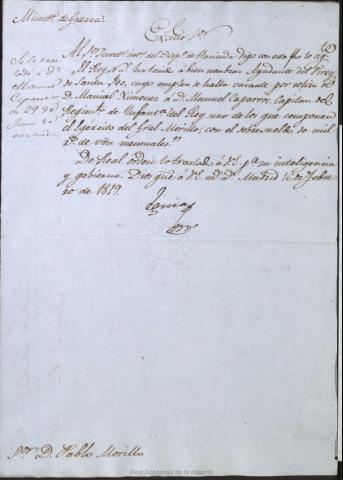 Minist.º de Guerra.
Exmo Sor
Al Sor Secret.º int.º del Desp.º de Hacienda digo con esta fha lo sig.te
El Rey N. S. ha tenido a bien nombrar Ayudante del Virey
de Santa Fee, cuyo empleo se halla vacante por retiro de
D. Manuel Ximenez a D. Manuel Caparros, Capitan del
Regim.to de Infant.a del Rey uno de los que componen
el Egercito del Gral Morillo, con el sobresueldo de mil
r.s de von mensuales."
De Real orden lo traslado á V.E. p.a su inteligencia
y gobierno. Dios gue á V.E. m.s a.s Madrid 16 de Febre-
ro de 1819.
Se lo tras-
ladó a D.
Manuel
Caparros
en
de
Junio de
ese año.
Sor D. Pablo Morillo
Real Academia de la Historia